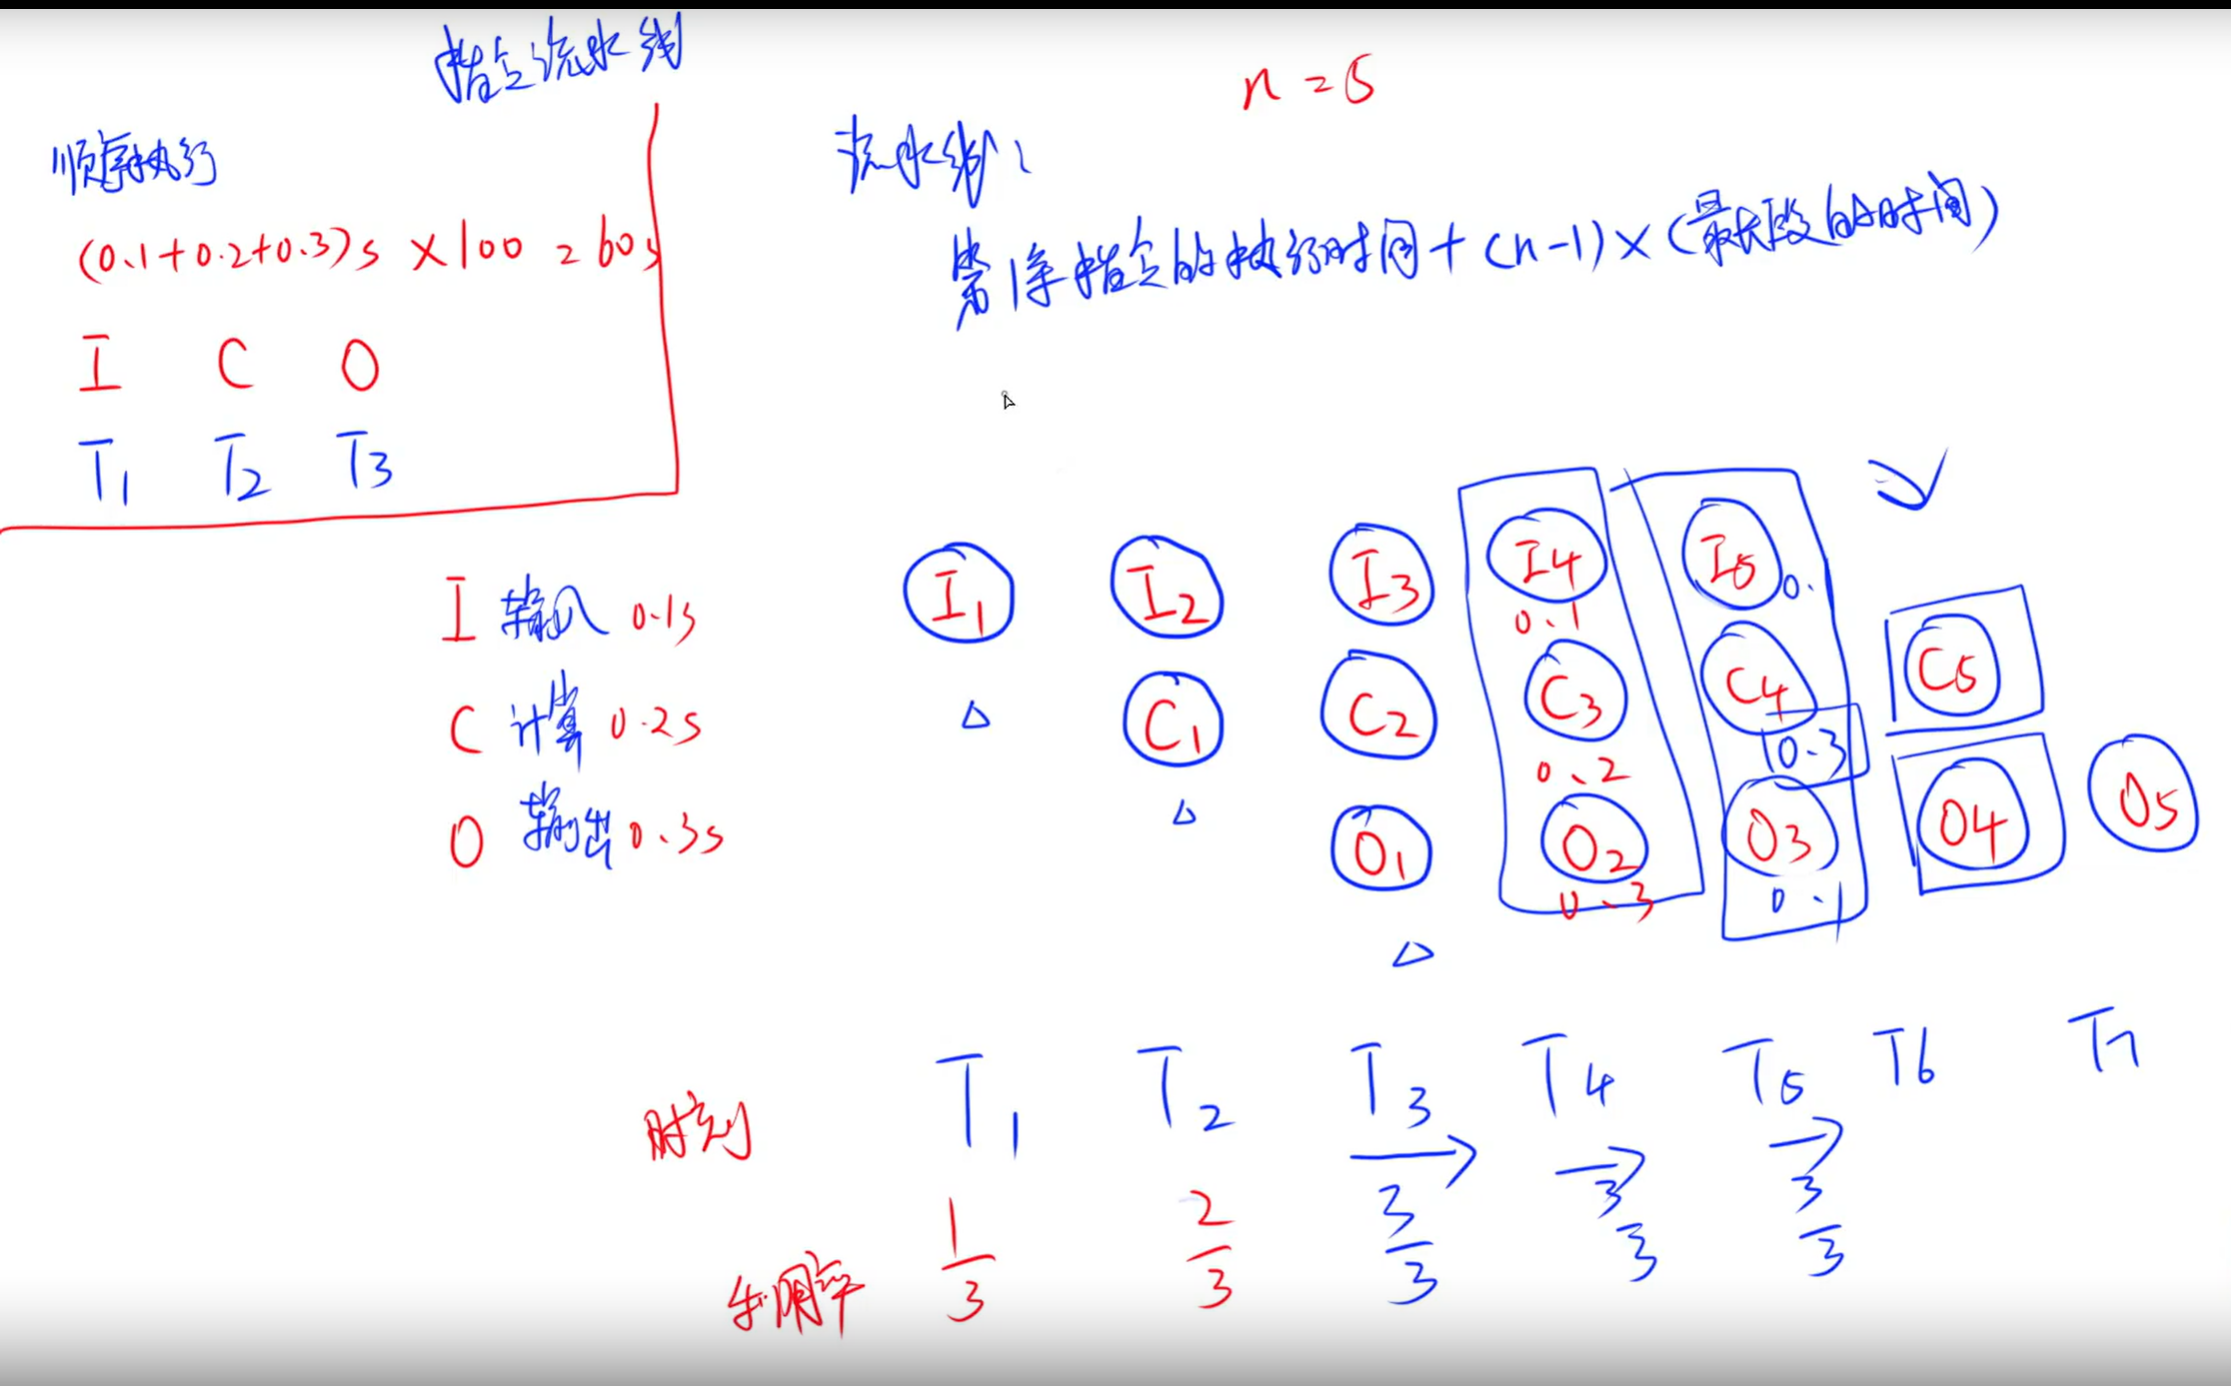 指令流水线
n=5
顺序执行
(0.1+0.2+0.3)s ×100 = 60s
I C O
T1 T2 T3
流水线:
第1条指令的执行时间+(n-1)×(最长段的时间)
I 输入 0.1s
C 计算 0.2s
O 输出 0.3s
I1 I2 I3 I4 I5
0.1 0.
C1 C2 C3 C4 C5
0.2 0.3
O1 O2 O3 O4 O5
0.3 0.1
时刻 T1 T2 T3 T4 T5 T6 T7
利用率 1/3 2/3 3/3 3/3 3/3